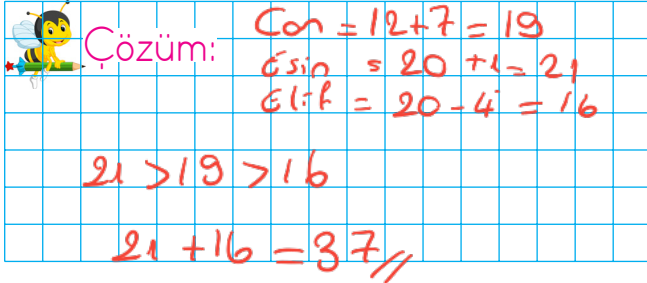 Çözüm:
Can = 12+7 = 19
Esin = 20 +1 = 21
Elif = 20 - 4 = 16
21 > 19 > 16
21 + 16 = 37//